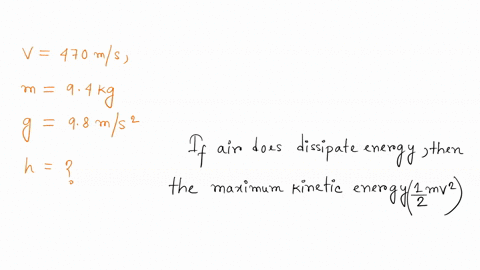 V = 470 m/s,
m = 9.4 kg
g = 9.8 m/s²
h = ?
If air does dissipate energy, then
the maximum kinetic energy (½mv²)